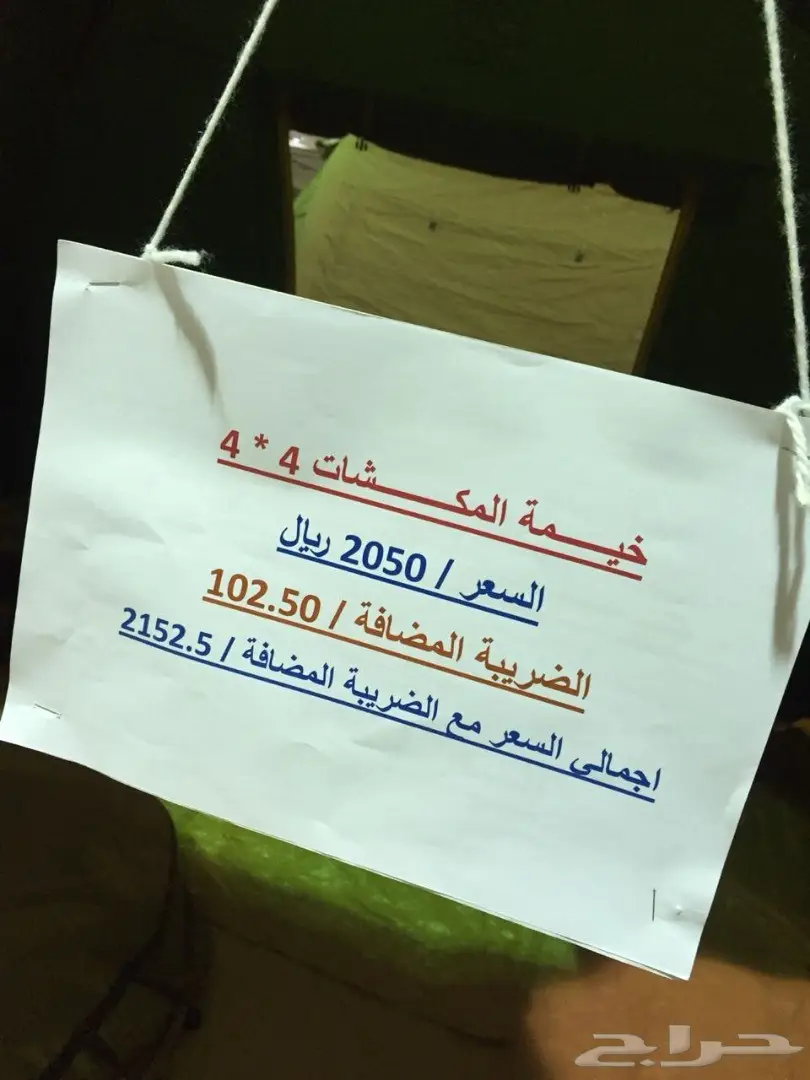 خيـــمة المكـــــــــشات 4 * 4
السعر / 2050 ريال
الضريبة المضافة / 102.50
اجمالي السعر مع الضريبة المضافة / 2152.5
حراج